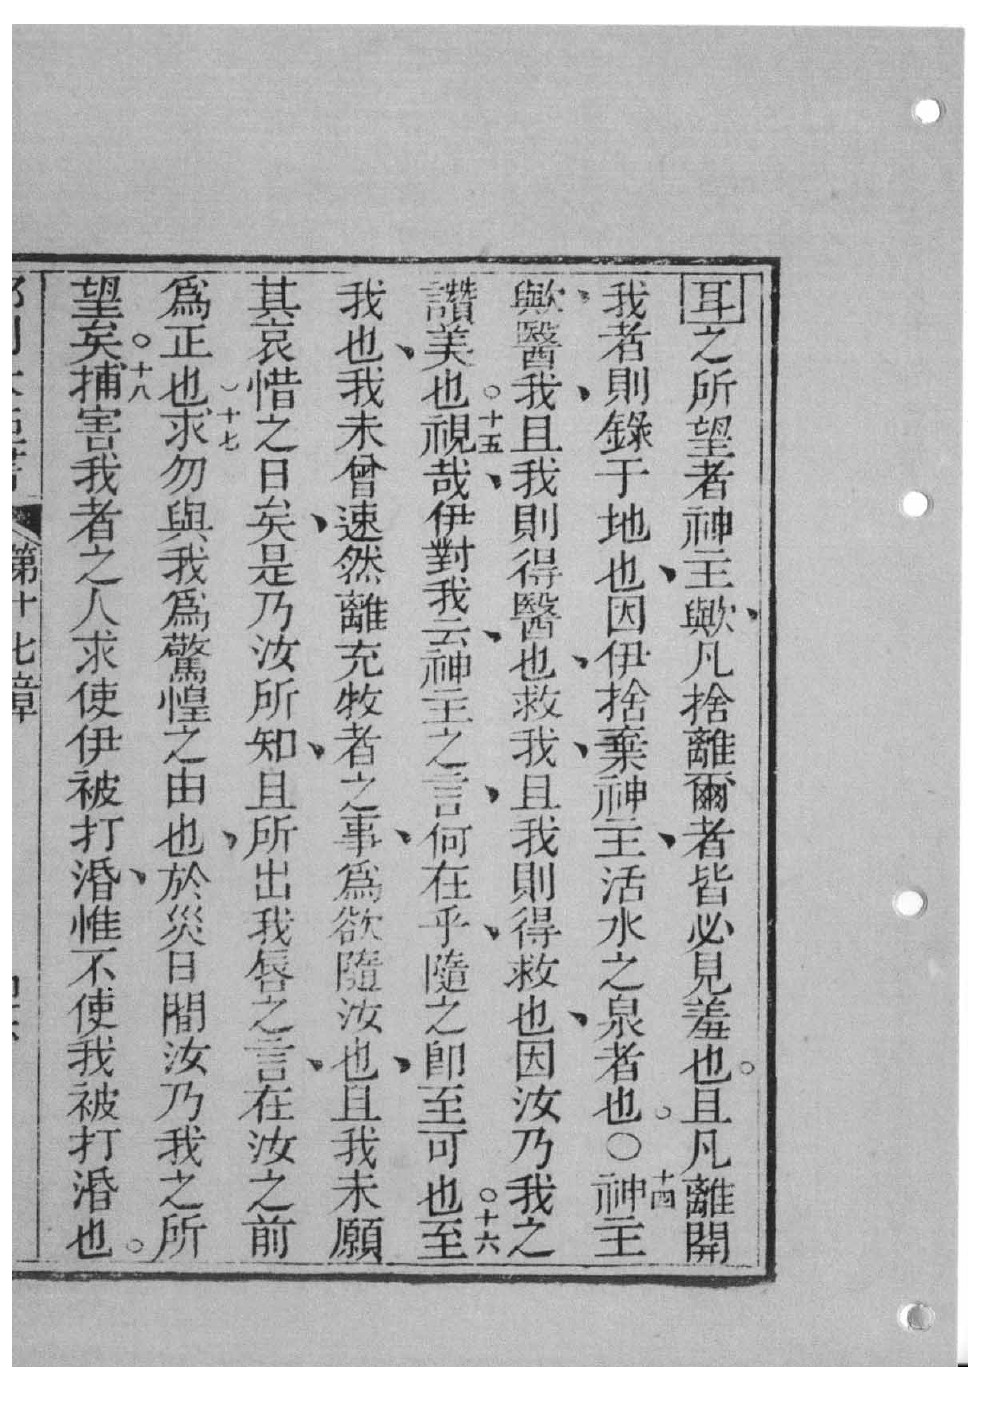 耳之所望者神主歟、凡捨離爾者皆必見羞也。且凡離開
我者則錄于地也、因伊捨棄神主、活水之泉者也。○十四神主
歟、醫我、且我則得醫也、救我、且我則得救也、因汝乃我之
讚美也。十五視哉、伊對我云、神主之言、何在乎、隨之卽至可也。十六至
我也、我未曾速然離充牧者之事、爲欲隨汝也、且我未願
其哀惜之日矣、是乃汝所知、且所出我唇之言、在汝之前
爲正也。十七求勿與我爲驚惶之由也、於災日間汝乃我之所
望矣。十八捕害我者之人求使伊被打湣、惟不使我被打湣也。
第十七章